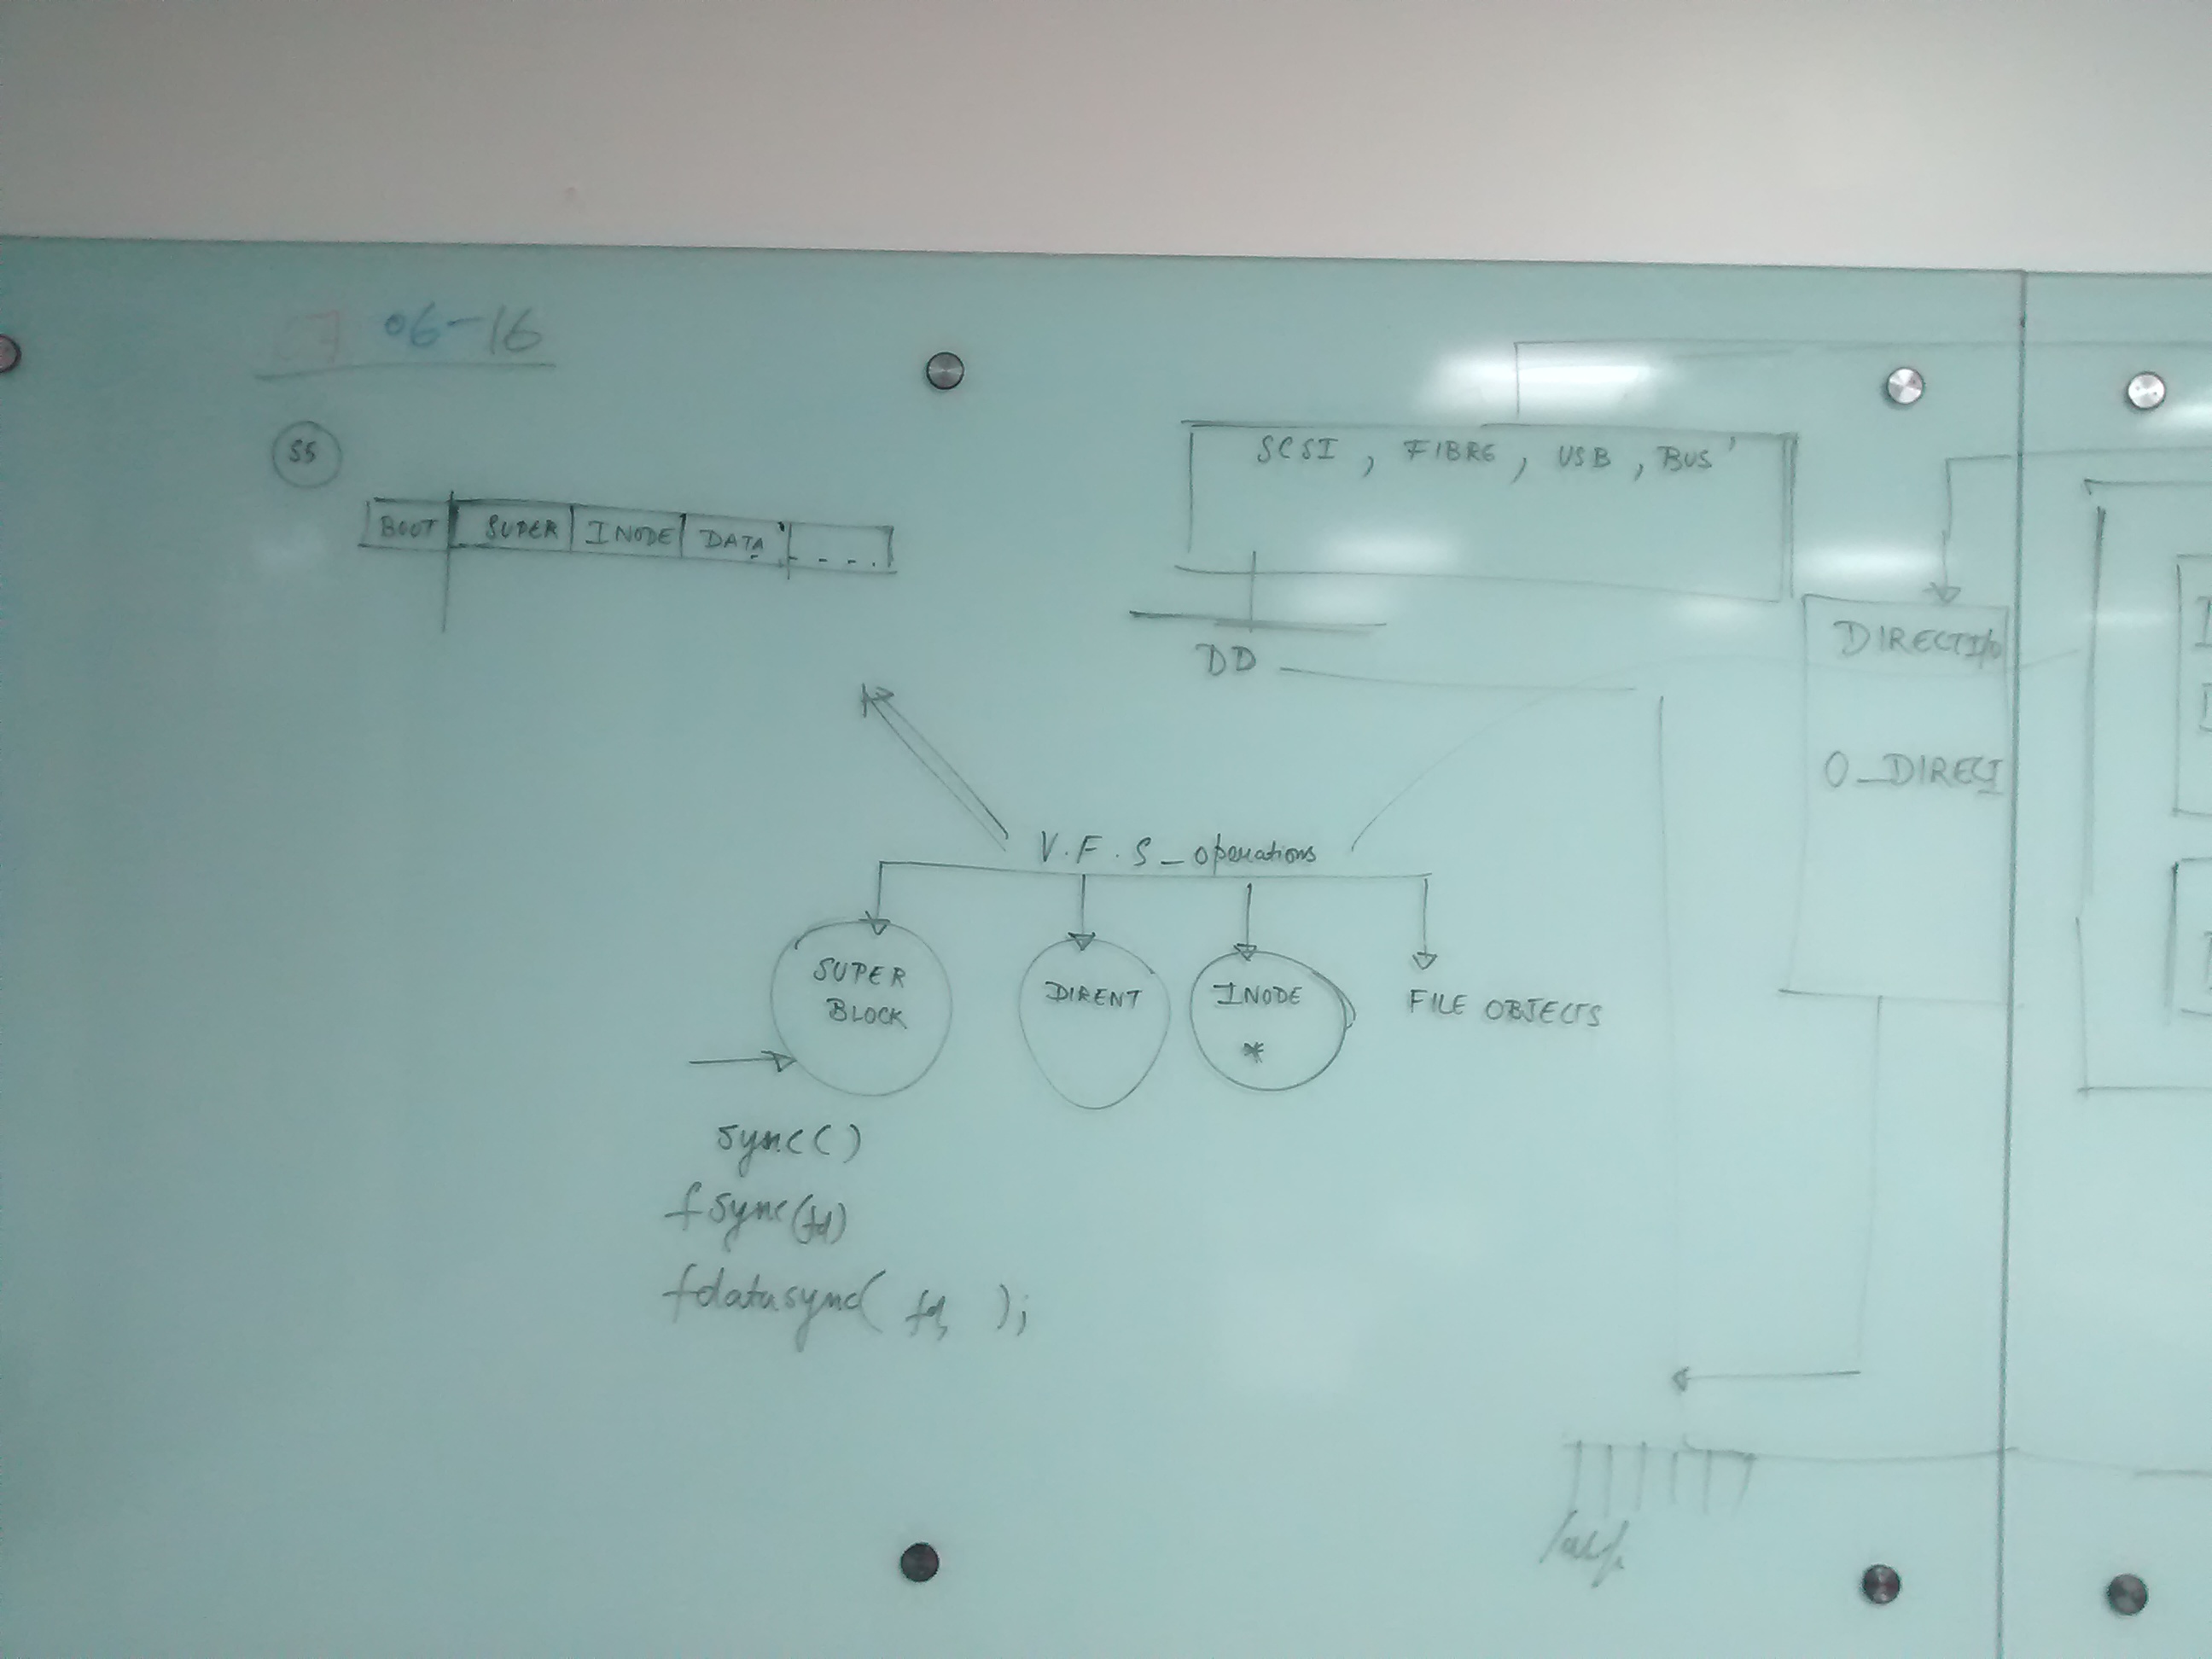 06-16
S5
BOOT SUPER INODE DATA ....
SCSI, FIBRE, USB, BUS'
DD
DIRECT I/O
O_DIRECT
V.F.S_operations
SUPER
BLOCK
DIRENT
INODE
*
FILE OBJECTS
sync()
fsync(fd)
fdatasync( fd, );